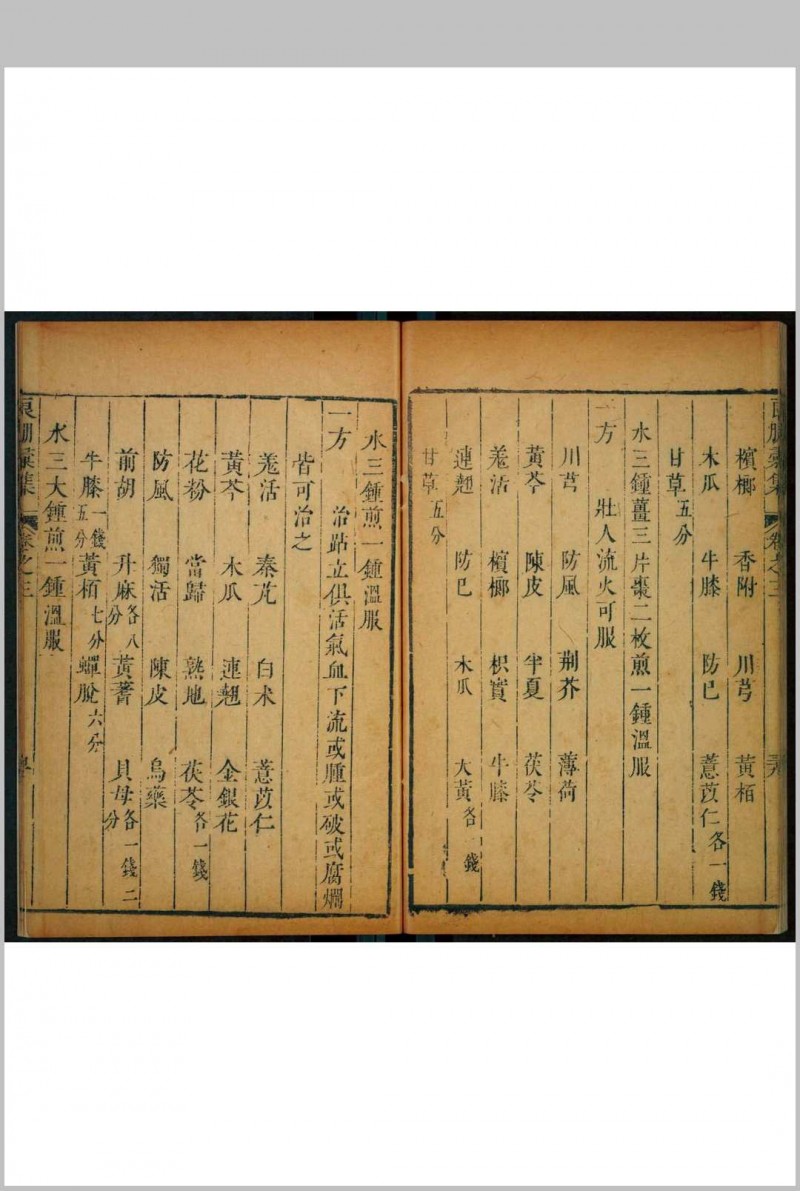 檳榔 香附 川芎 黃栢
木瓜 牛膝 防已 薏苡仁各一錢
甘草五分
水三鍾薑三片棗二枚煎一鍾溫服
一方 壯人流火可服
川芎 防風 荆芥 薄荷
黃芩 陳皮 半夏 茯苓
羗活 檳榔 枳實 牛膝
連翹 防已 木瓜 大黃各 錢
甘草五分
水三鍾煎一鍾溫服
一方 治跕立俱活氣血下流或腫或破或腐爛
皆可治之
羗活 秦艽 白朮 薏苡仁
黃芩 木瓜 連翹 金銀花
花粉 當歸 熟地 茯苓各一錢
防風 獨活 陳皮 烏藥
前胡 升麻各八分 黃蓍 貝母各一錢二分
牛膝一錢五分 黃栢七分 蟬脫六分
水三大鍾煎一鍾溫服
集 卷之三